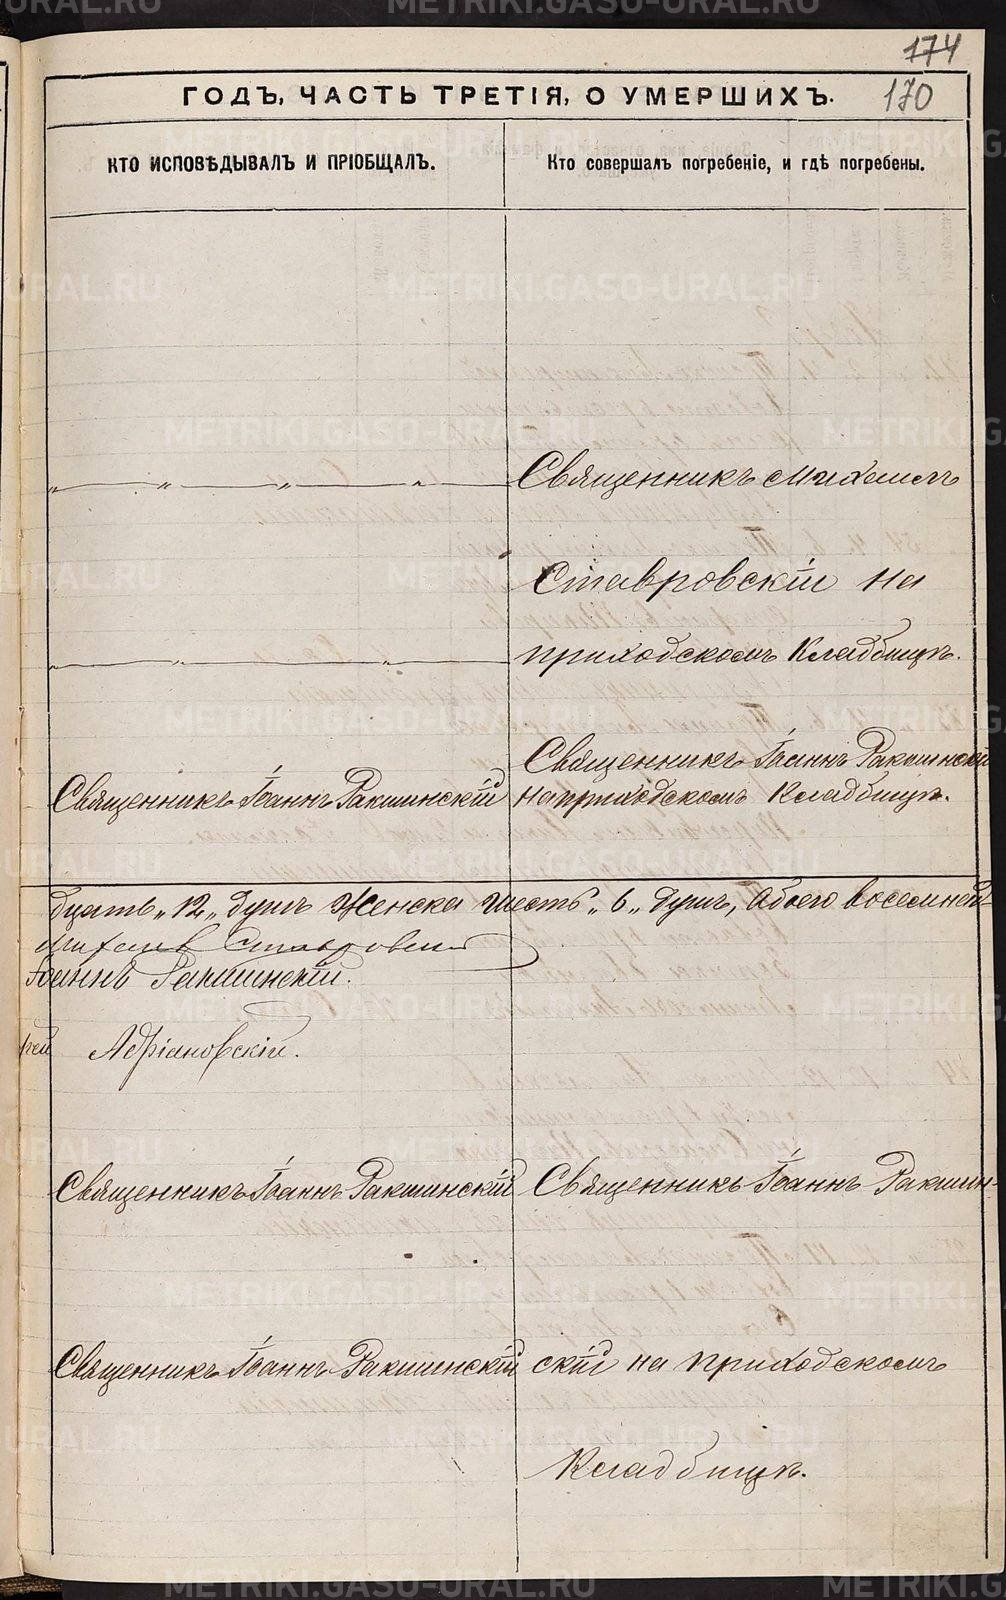 174
170
ГОДЪ, ЧАСТЬ ТРЕТІЯ, О УМЕРШИХЪ.
КТО ИСПОВѢДЫВАЛЪ И ПРІОБЩАЛЪ.
Кто совершалъ погребеніе, и гдѣ погребены.
Священникъ Михаилъ
Ставровскій на
приходскомъ Кладбищѣ.
Священникъ Іоаннъ Ракшинскій
Священникъ Іоаннъ Ракшинскій
на приходскомъ Кладбищѣ.
дцать „12„ душъ Женска шесть „6„ душъ, Обоего восемнад-
Михаилъ Ставровскій
Іоаннъ Ракшинскій.
Адріановскій.
Священникъ Іоаннъ Ракшинскій
Священникъ Іоаннъ Ракшин-
Священникъ Іоаннъ Ракшинскій
скій на приходскомъ
Кладбищѣ.
METRIKI.GASO-URAL.RU